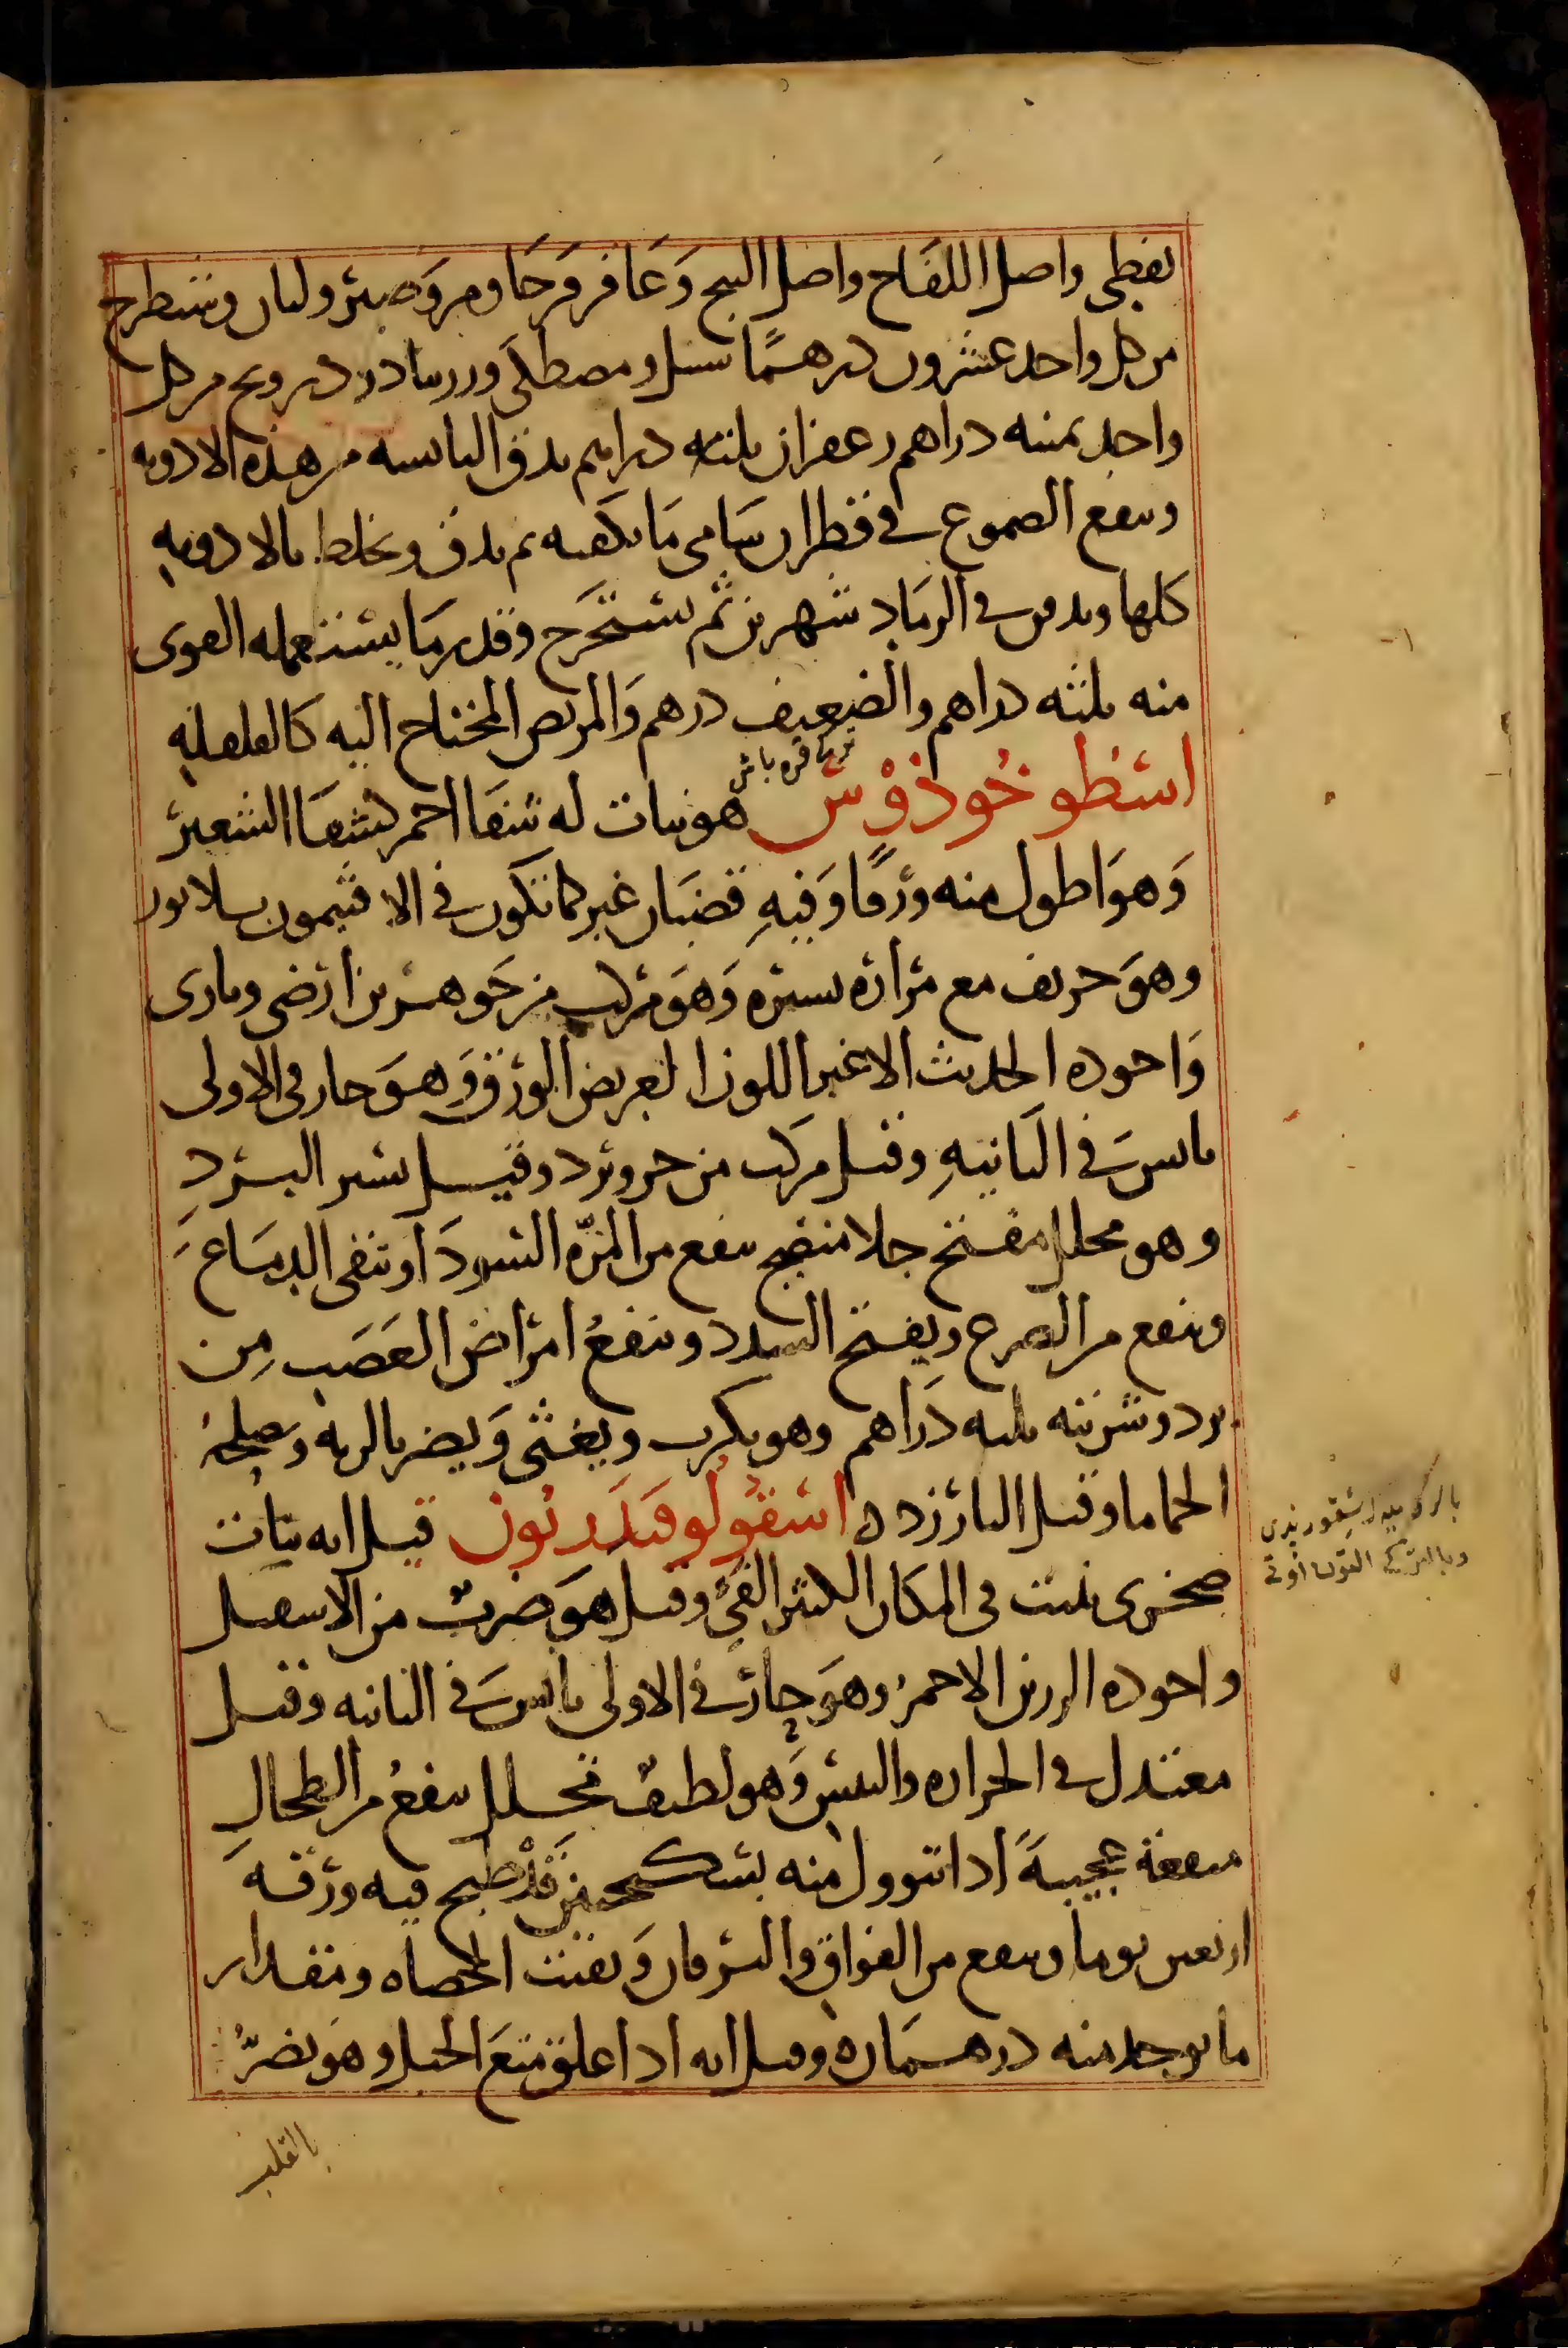 نفطى واصل اللفاح واصل البنج وَعَاقر قرحَا ومر وَصبر ولبان وشطرج
من كل واحد عشرون درهمًا سنبل ومصطكى وزرنباد ودرونج من كل
واحد ثمنيه دراهم زعفران ثلثه دراهم يدق اليابسه من هذه الادويه
وينقع الصموغ فى قطران شامى مَا يكفيه ثم يدق ويخلط بالادويهِ
كلها ويدفن فى الرمَاد شهرين ثم يستخرَج وقدر مَا يستعمله القوى
منه ثلثه دراهم والضعيف درهم وَالمريض المحتاج اليه كالفلفلهِ
اسْطوخُوذوْس هو نبات له سَفَا احمر كسَفَا الشعير
قره باش
وَهوَ اطول منه ورقًا وَفيهِ قضبَان غبر كما تكون فى الافتيمون بلا نور
وهوَ حريف مع مرَاره يسيره وَهوَ مركب من جَوهرين ارضى ونارى
وَاجوده الحديث الاغبر اللون العريض الورق وَهوَ حار فى الاولى
يابس فى الثانيهِ وقيل مركب من حر وبرد وقيل يسير البردِ
وهو محلل مفتح جلا منضج ينفع من المرّه السودَا وينقى الدمَاغ
وينفع من الصرع ويفتح السدد وينفعُ امرَاض العَصَب مِن
برد وشربته ثلثه دَرَاهم وهو يكرب ويغثى وَيضر بالريه ويصلحهُ
الحماما وقيل البارزد ه اسْقولُوقَندَريُون قيل انه نبات
صخرى ينبت فى المكان الكثير الفئ وقيل هوَ ضربٌ من الاسقيل
واجوده الرزين الاحمر وهوَ حارٌ فى الاولى يابسَ فى الثانيه وقيل
معتدل فى الحراره واليبس وَهو لطيف محلل ينفعُ من الطحالِ
منفعة عجيبهَ اذا تنوول منه بسكنجبين قَدْ طبخ فيه ورقهَ
اربعين يوما وينفع من الفواق واليرقان وَيفتت الحصاه ومقدار
ما يوخذ منه درهمَان ه وقيل انه اذا علق منعَ الحبل وهوَ يضرُّ
وبالتركى التون اوتى
بالقلب